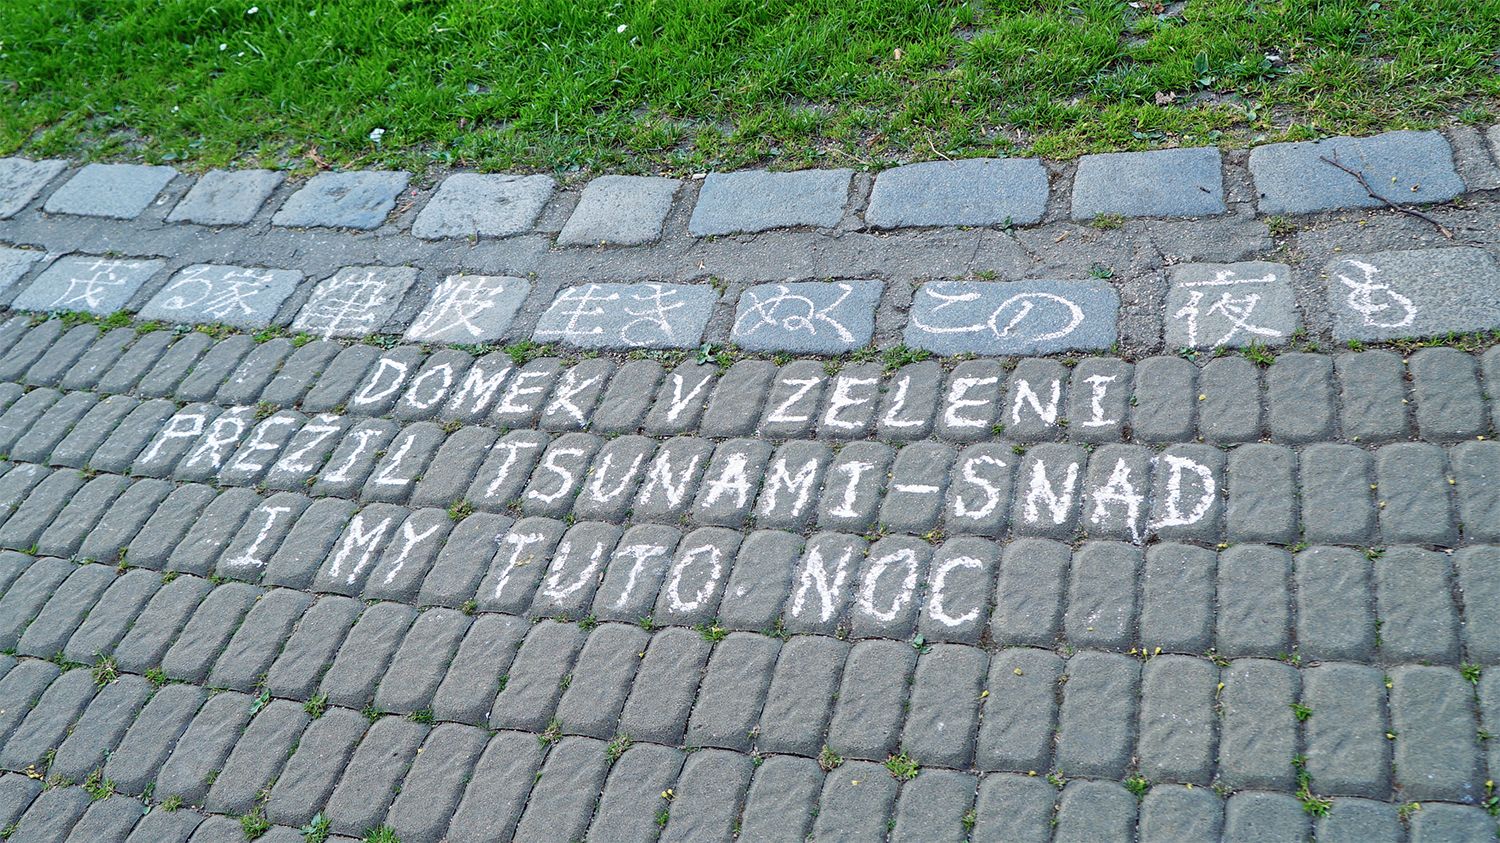 茂る家津波生きぬくこの夜も
DOMEK V ZELENI
PŘEŽIL TSUNAMI-SNAD
I MY TUTO NOC